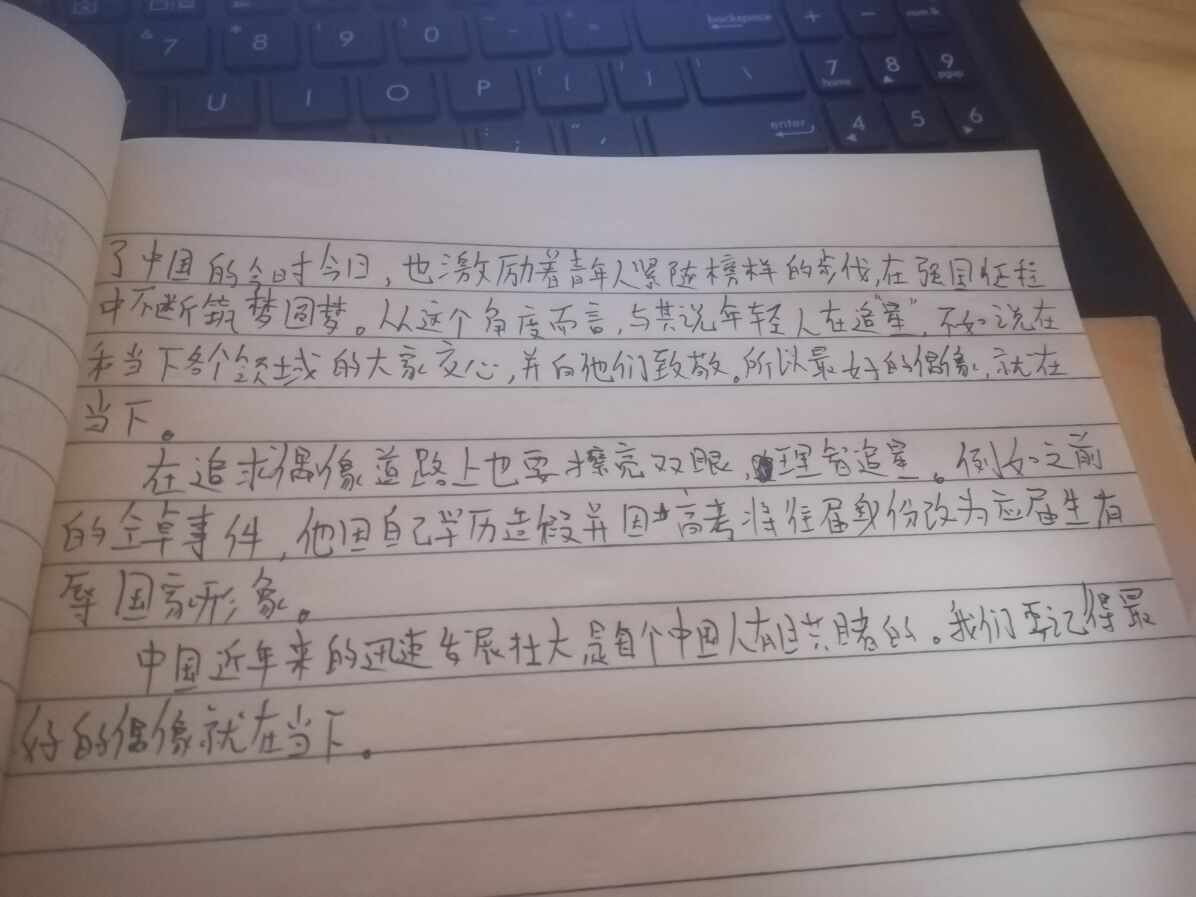 & 7 * 8 ( 9 ) 0 - _ + = backspace + - num lk
U I O P { [ } ] | \ 7 home 8 9 pgup
: ; " ' enter 4 5 6
了中国的今时今日，也激励着青年人紧随榜样的步伐，在强国征程
中不断筑梦圆梦。从这个角度而言，与其说年轻人在追“星”，不如说在
和当下各个领域的大家交心，并向他们致敬。所以最好的偶像，就在
当下。
在追求偶像道路上也要擦亮双眼，理智追星。例如之前
的仝卓事件，他因自己学历造假并因高考将往届身份改为应届生有
辱国家形象。
中国近年来的迅速发展壮大是每个中国人有目共睹的。我们要记得最
好的偶像就在当下。